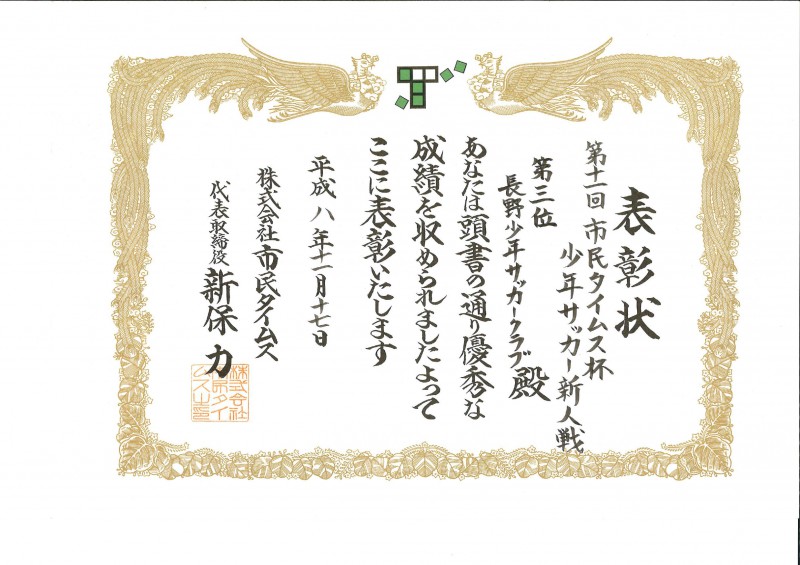 表彰状
第十一回 市民タイムス杯
少年サッカー新人戦
第三位
長野少年サッカークラブ殿
あなたは頭書の通り優秀な
成績を収められましたよって
ここに表彰いたします
平成八年十一月十七日
株式会社市民タイムス
代表取締役 新保力
株式会社